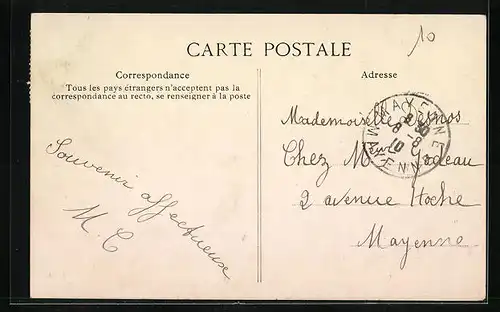 10
CARTE POSTALE
Correspondance
Tous les pays étrangers n'acceptent pas la
correspondance au recto, se renseigner à la poste
Souvenir affectueuse
M. C
Adresse
Mademoiselle
Chez M Godeau
2 avenue Hoche
Mayenne
MAYENNE
8 30
8 - 8
10
MAYENNE